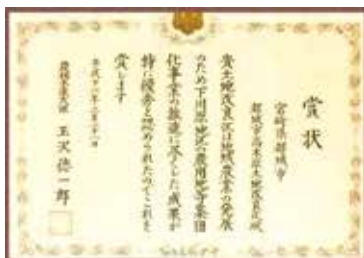 賞状
宮崎県都城市
都城市高木土地改良区殿
貴土地改良区は地域農業の発展
のため下川原地区の農用地等集団
化事業の推進に尽くした成果が
特に優秀と認められたのでこれを
賞します
農林水産大臣 玉沢徳一郎